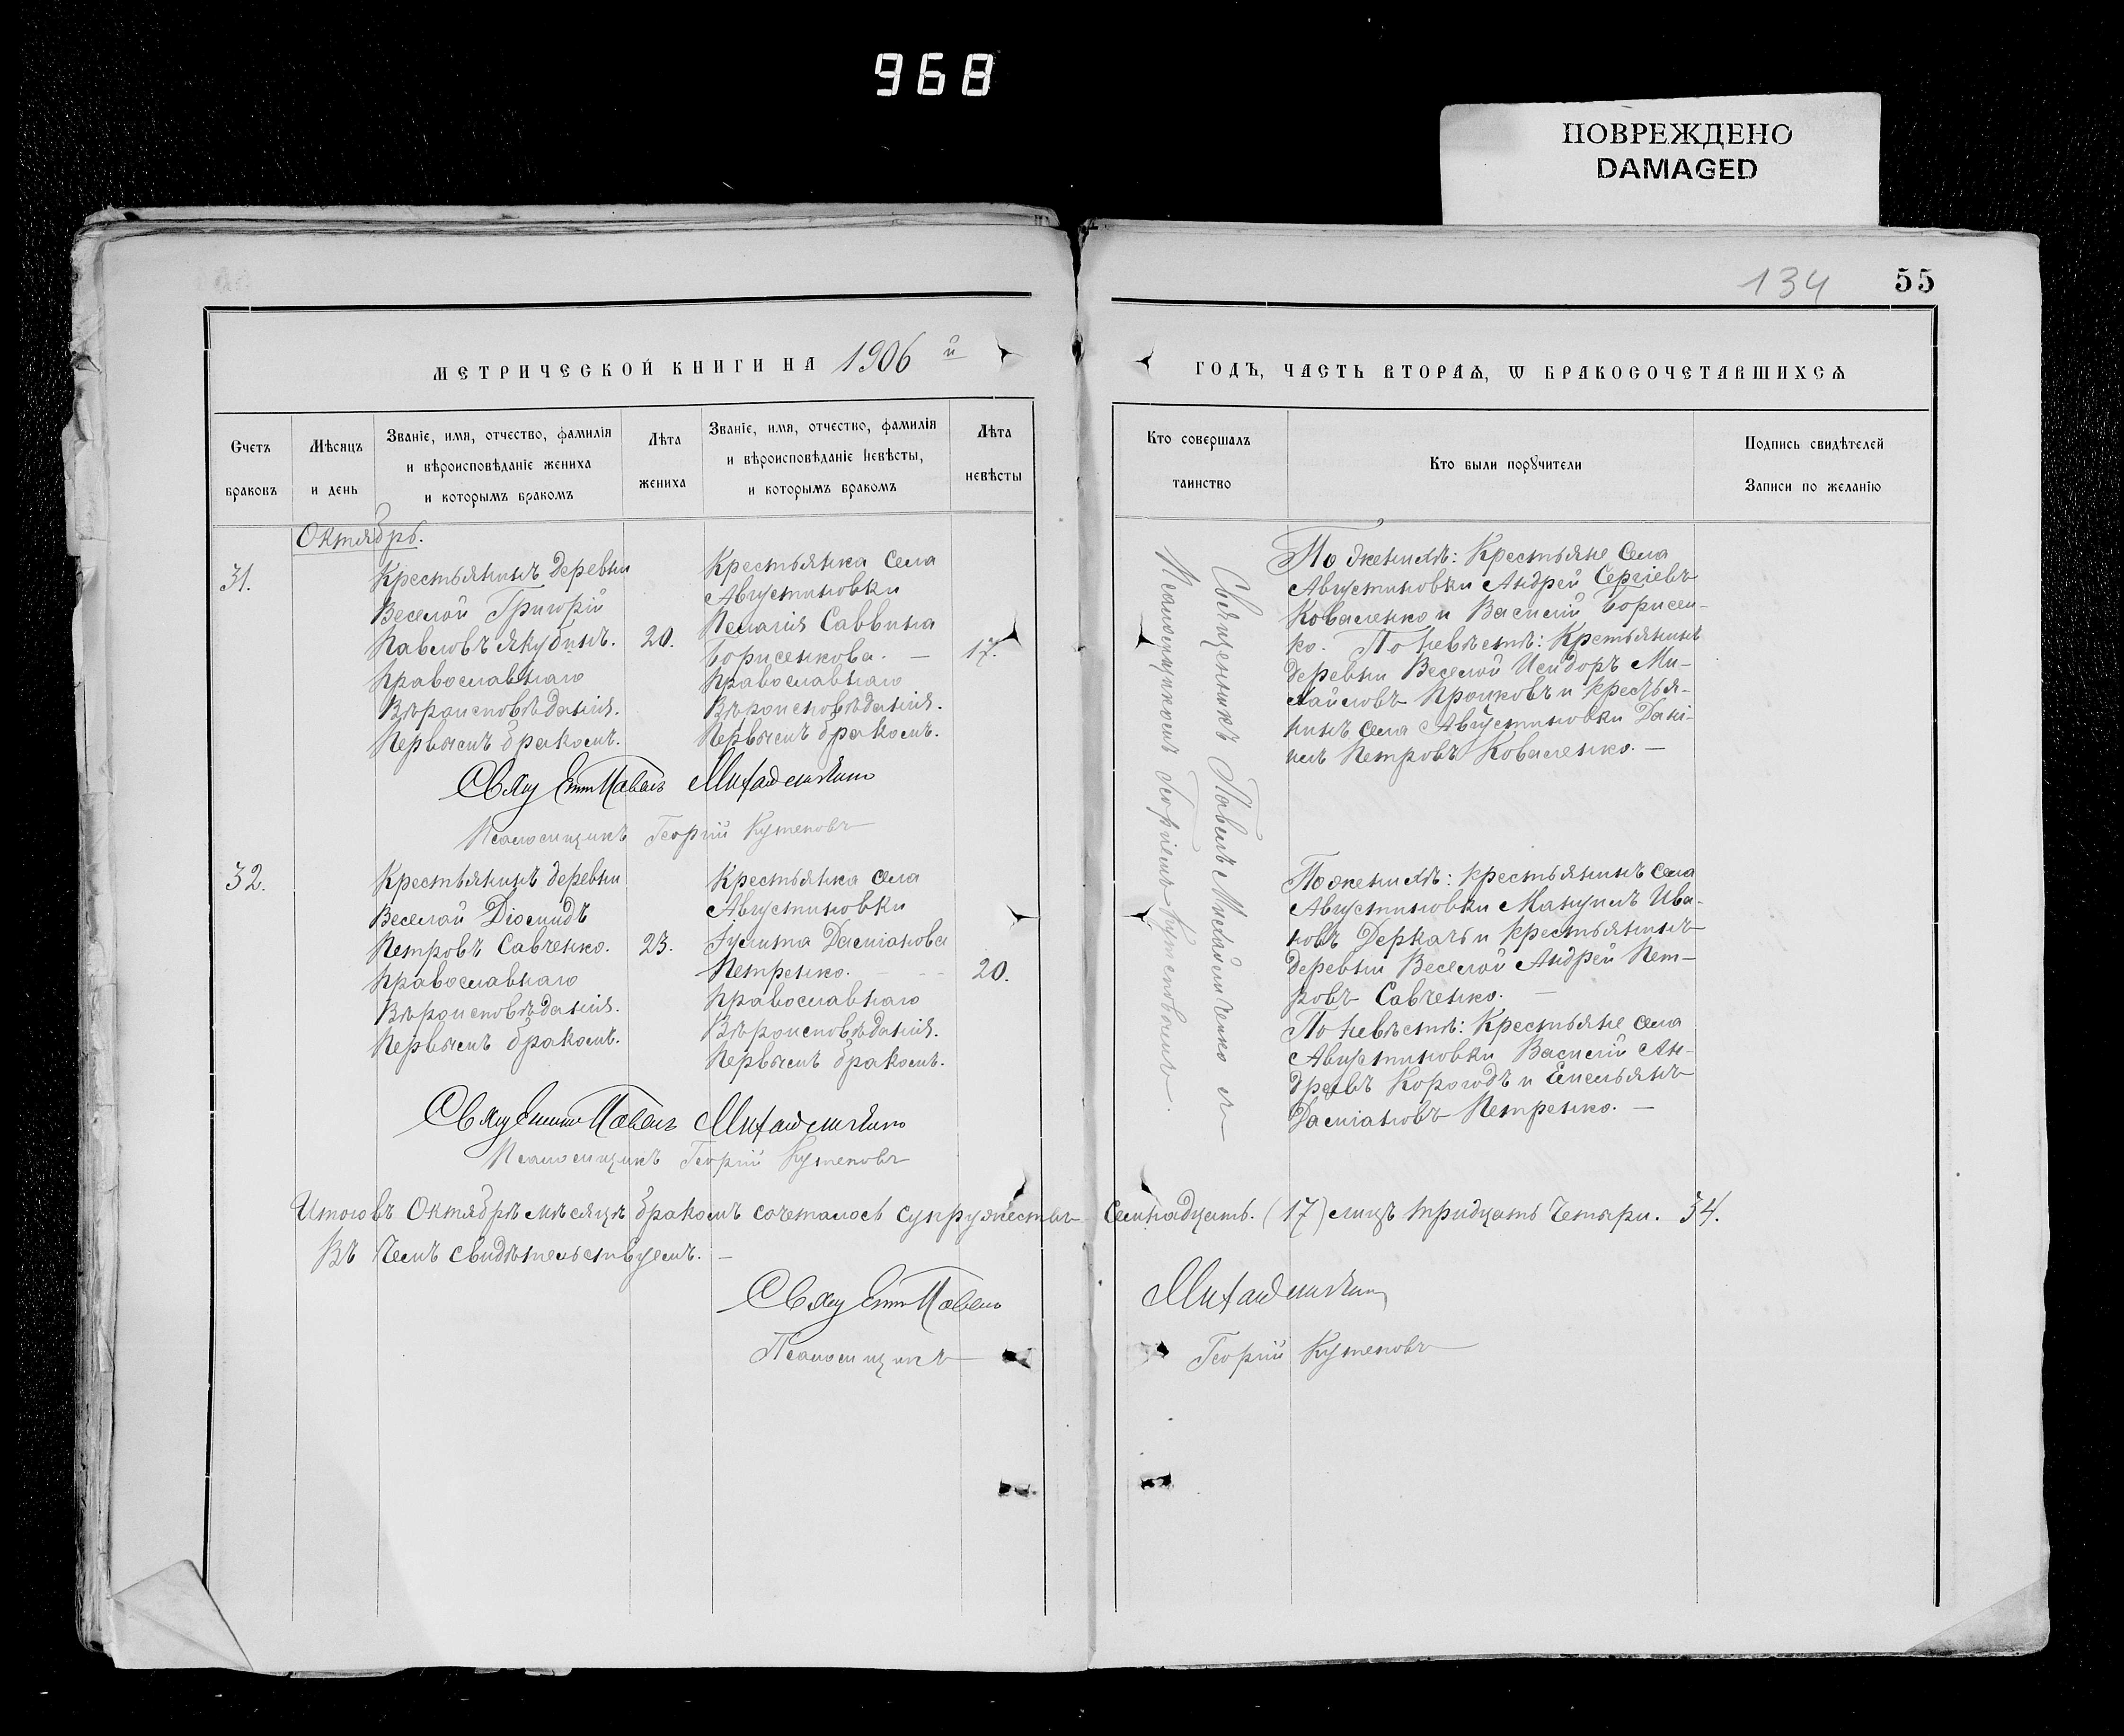 968
ПОВРЕЖДЕНО
DAMAGED
134 55
МЕТРИЧЕСКОЙ КНИГИ НА 1906 й
ГОДЪ, ЧАСТЬ ВТОРАѦ, Ѡ БРАКОСОЧЕТАВШИХСѦ
Счетъ
браковъ
Мѣсяцъ
и день
Званіе, имя, отчество, фамилія
и вѣроисповѣданіе жениха
и которымъ бракомъ
Лѣта
жениха
Званіе, имя, отчество, фамилія
и вѣроисповѣданіе невѣсты,
и которымъ бракомъ
Лѣта
невѣсты
Кто совершалъ
таинство
Кто были поручители
Подпись свидѣтелей
Записи по желанію
Октябрь.
31.
Крестьянинъ деревни
Веселой Григорій
Павловъ Якубинъ.
Православнаго
Вѣроисповѣданія.
Первымъ бракомъ.
20.
Крестьянка села
Августиновки
Пелагія Саввина
Борисенкова. —
Православнаго
Вѣроисповѣданія.
Первымъ бракомъ.
17.
Священникъ Павелъ Михайличенко съ
Псаломщикомъ Георгіемъ Кутеповымъ.
По женихѣ: Крестьяне Села
Августиновки Андрей Сергіевъ
Коваленко и Василій Борисен-
ко. По невѣстѣ: Крестьянинъ
деревни Веселой Исидоръ Ми-
хайловъ Процковъ и крестья-
нинъ села Августиновки Дані-
илъ Петровъ Коваленко. —
Свящ Павелъ Михайличенко
Псаломщикъ Георгій Кутеповъ
32.
Крестьянинъ деревни
Веселой Діомидъ
Петровъ Савченко.
Православнаго
Вѣроисповѣданія.
Первымъ бракомъ.
23.
Крестьянка села
Августиновки
Іулитта Даміанова
Петренко. --
Православнаго
Вѣроисповѣданія.
Первымъ бракомъ.
20.
По женихѣ: крестьянинъ села
Августиновки Мануилъ Ива-
новъ Деркачъ и крестьянинъ
деревни Веселой Андрей Пет-
ровъ Савченко. —
По невѣстѣ: Крестьяне села
Августиновки Василій Ан-
дреевъ Корогодъ и Емельянъ
Даміановъ Петренко. —
Свящ Павелъ Михайличенко
Псаломщикъ Георгій Кутеповъ
Итого въ Октябрѣ мѣсяцѣ бракомъ сочеталось супружествъ Семнадцать. (17) лицъ тридцать четыри. 34.
Въ чемъ свидѣтельствуемъ. —
Свящ Павелъ Михайличенко
Псаломщикъ Георгій Кутеповъ